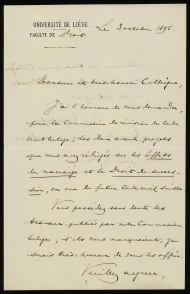 UNIVERSITÉ DE LIÉGE
FACULTÉ DE Droit
Le 3 octobre 1895.
Monsieur et très honoré Collègue,
J'ai l'honneur de vous demander
pour la Commission de révision du Code
civil belge, les deux avants projets
que vous avez rédigés sur les Effets
du mariage et le Droit de succes-
sion, en vue du futur Code civil Suisse.
Vous possédez sans doute les
travaux publiés par notre Commission
belge; s'ils vous manquaient, je
serais très heureux de vous les offrir.
Veuillez agréer,